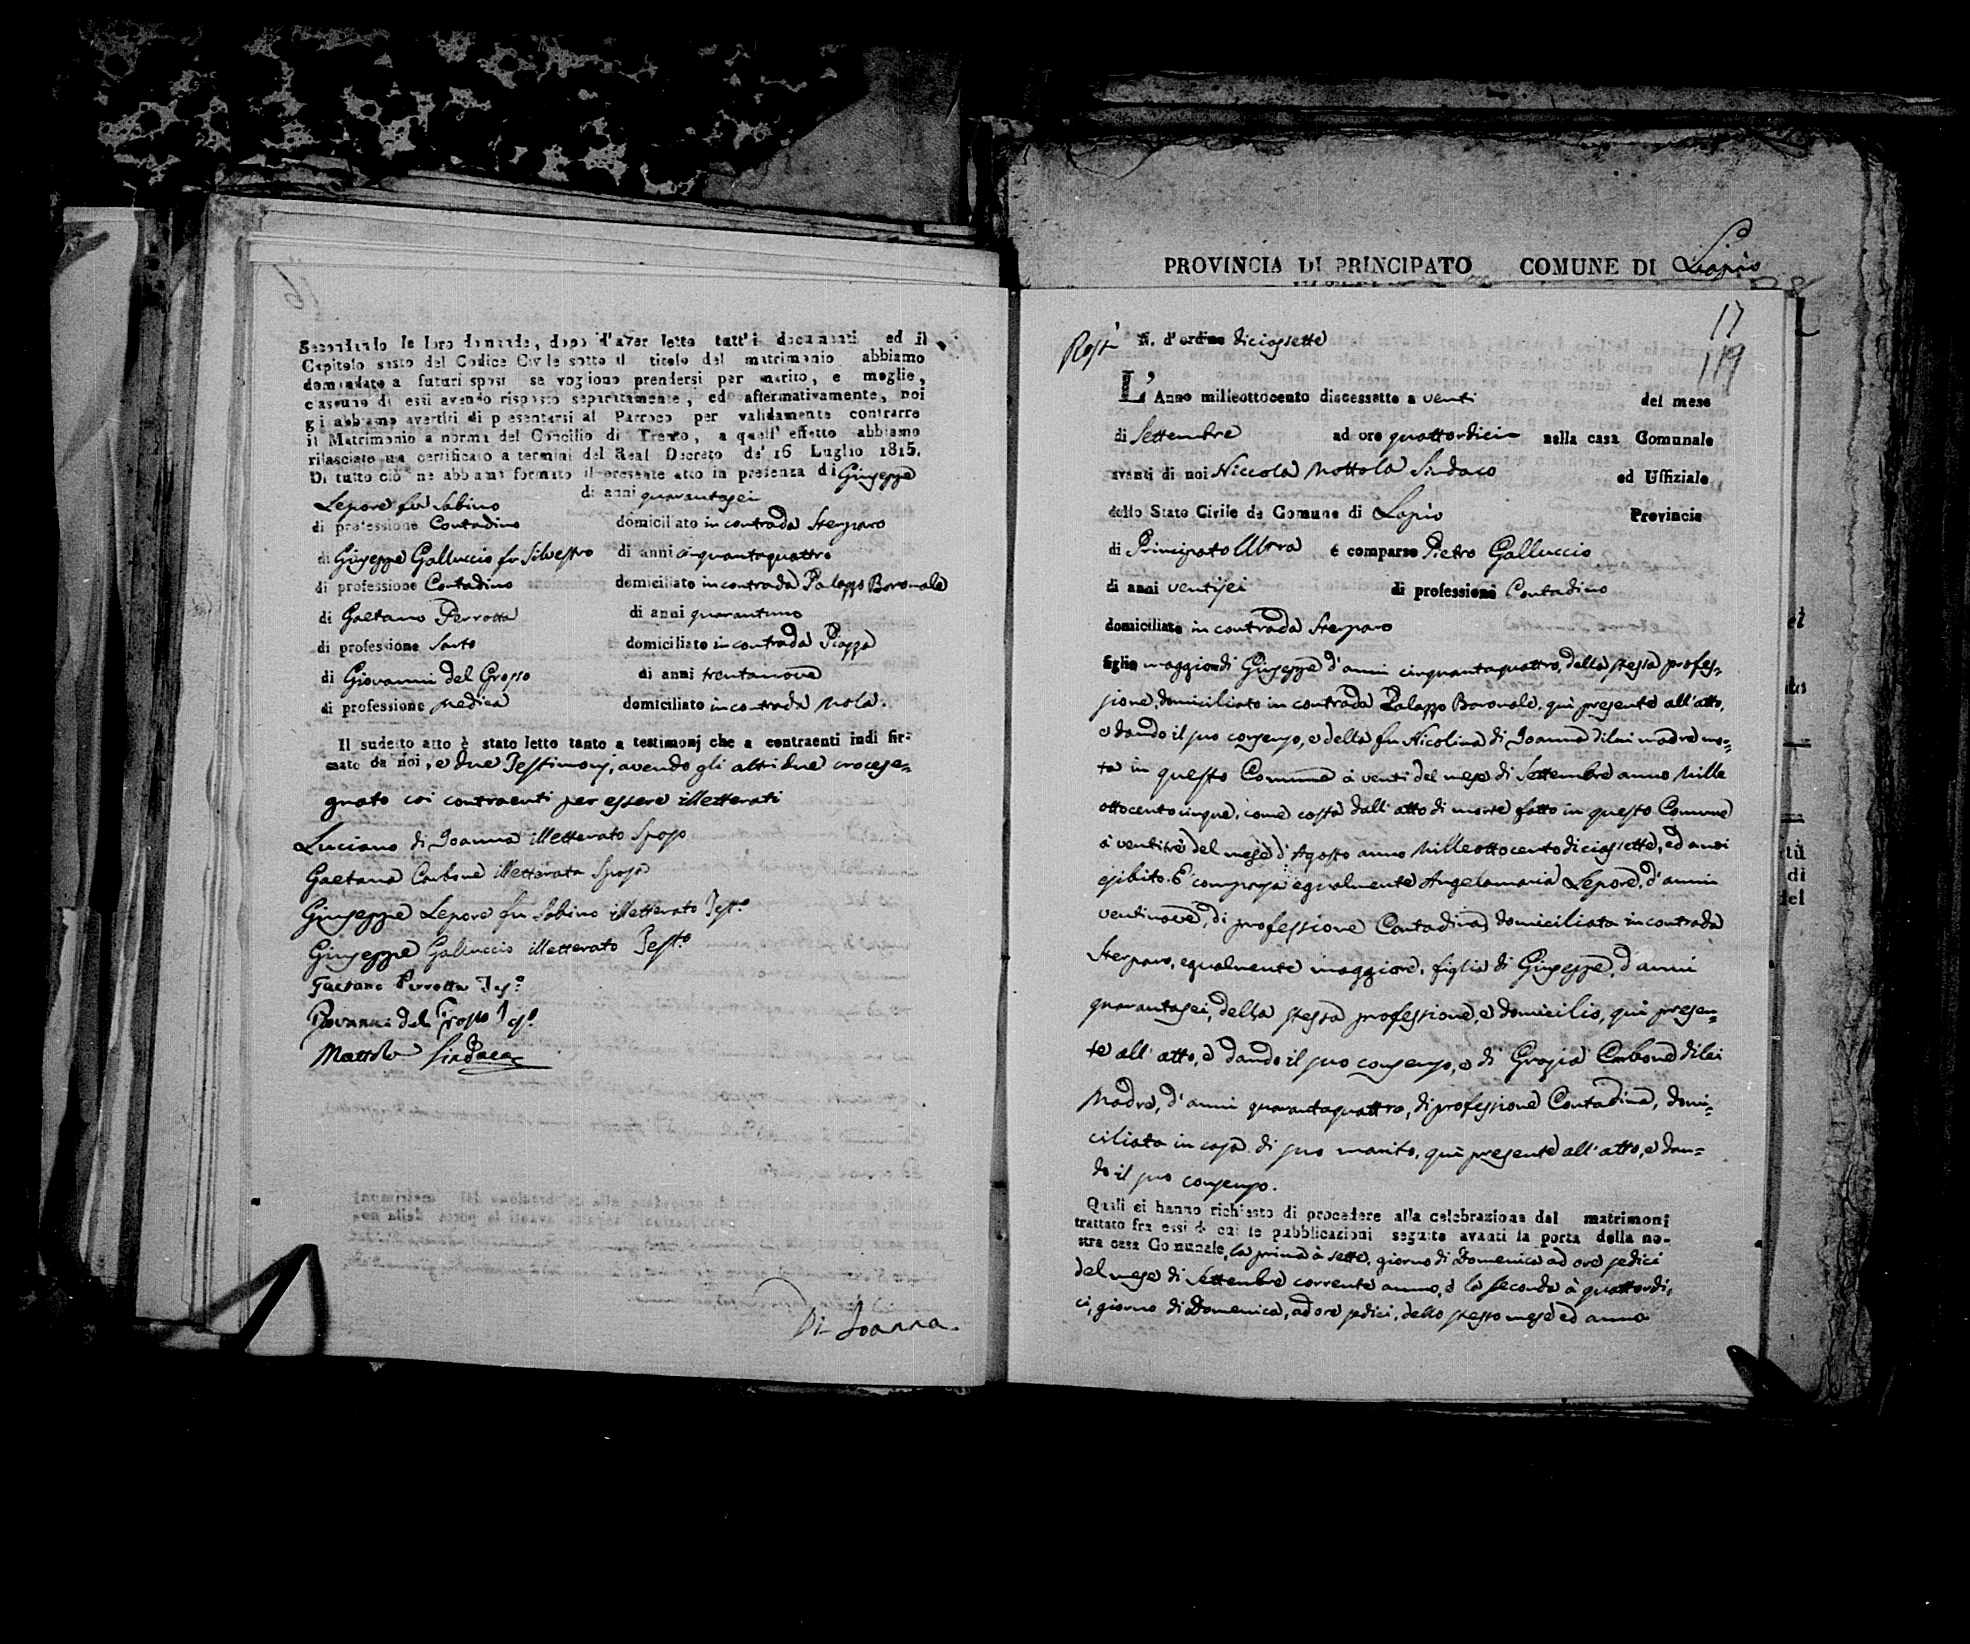 Secondando le loro domande, dopo d'aver letto tutt'i documenti ed il
Capitolo sesto del Codice Civile sotto il titolo del matrimonio abbiamo
domandato a futuri sposi se vogliono prendersi per marito, e moglie,
ciascuno di essi avendo risposto separatamente, ed affermativamente, noi
gli abbiamo avertiri di presentarsi al Parroco per validamente contrarre
il Matrimonio a norma del Concilio di Trento, a quell' effetto abbiamo
rilasciato un certificato a termini del Real Decreto de' 16 Luglio 1815.
Di tutto ciò ne abbiamo formato il presente atto in presenza di Giuseppe
Lepore fu Sabino di anni quarantasei
di professione Contadino domiciliato in contrada Sterparo
di Giuseppe Galluccio fu Silvestro di anni cinquantaquattro
di professione Contadino domiciliato in contrada Palazzo Baronale
di Gaetano Perrotta di anni quarantuno
di professione Sarto domiciliato in contrada Piazza
di Giovanni del Grosso di anni trentanove
di professione Medica domiciliato in contrada Mola.
Il sudetto atto è stato letto tanto a testimonj che a contraenti indi fir-
mato da noi, e due Testimonj, avendo gli altri due crocese=
gnato coi contraenti per essere illetterati
Luciano di Joanna illetterato Sposo
Gaetana Carbone illetterata Sposa
Giuseppe Lepore fu Sabino illetterato Test.o
Giuseppe Galluccio illetterato Test.o
Gaetano Perrotta Tes.o
Giovanni del Grosso Tes.o
Mottola Sindaco
Di Joanna
PROVINCIA DI PRINCIPATO COMUNE DI Lapio
17
119
N. d'ordine diciassette
L'Anno milleottocento diecessette a venti del mese
di Settembre ad ore quattordici nella casa Comunale
avanti di noi Niccola Mottola Sindaco ed Uffiziale
dello Stato Civile de Comune di Lapio Provincia
di Principato Ultra è comparso Pietro Galluccio
di anni ventisei di professione Contadino
domiciliato in contrada Sterparo
figlio maggiore di Giuseppe d'anni cinquantaquattro, della stessa profes=
sione, domiciliato in contrada Palazzo Baronale, quì presente all'atto,
e dando il suo consenso, e della fu Nicolina di Joanna di lui madre mor=
ta in questo Comune à venti del mese di Settembre anno Mille
ottocento cinque, come costa dall'atto di morte fatto in questo Comune
à ventitrè del mese d'Agosto anno Milleottocento diciassette, ed a noi
esibito. E' comparsa egualmente Angelamaria Lepore, d'anni
ventinove, di professione Contadina, domiciliata in contrada
Sterparo, egualmente maggiore, figlia di Giuseppe, d'anni
quarantasei, della stessa professione, e domicilio, quì presen=
te all'atto, e dando il suo consenso, e di Grazia Carbone di lei
Madre, d'anni quarantaquattro, di professione Contadina, domi=
ciliata in casa di suo marito, quì presente all'atto, e dan=
do il suo consenso.
Quali ci hanno richiesto di procedere alla celebrazione del matrimoni
trattato fra essi di cui le pubblicazioni seguite avanti la porta della no-
stra casa Comunale, la prima à sette, giorno di Domenica ad ore sedici
del mese di Settembre corrente anno, e la seconda à quattordi,
ci, giorno di Domenica, ad ore sedici, dello stesso mese ed anno